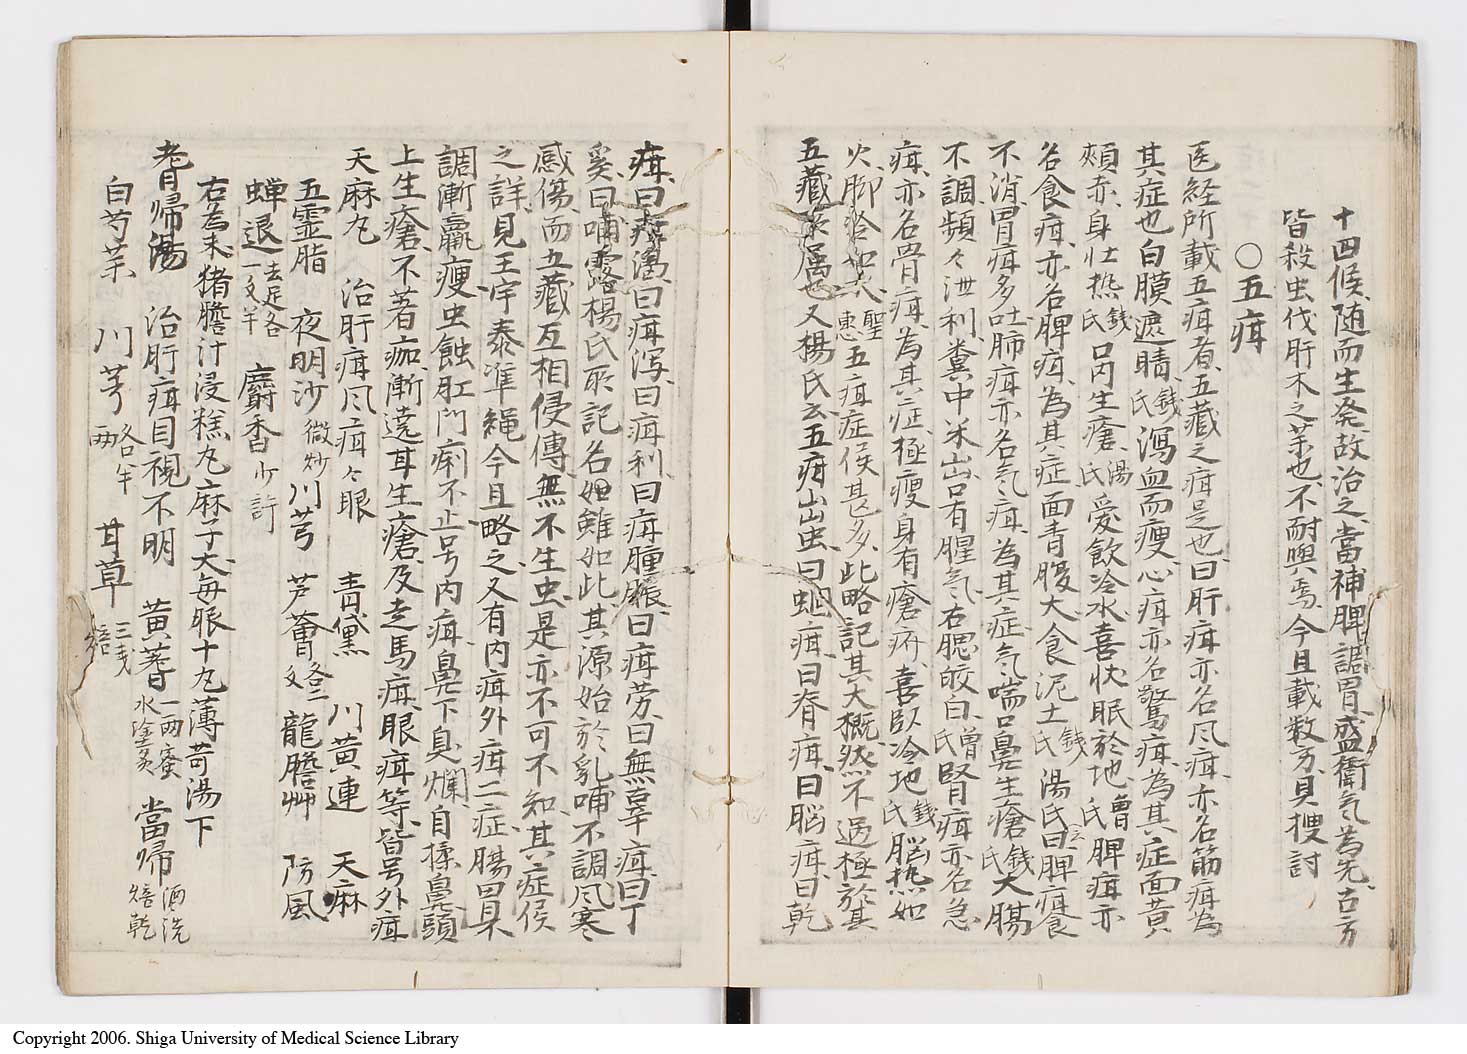 十四候随而生発故治之當補脾調胃盛衛気為先古方
皆殺虫伐肝木之薬也不耐與焉今且載数方具捜討
○五疳
医経所載五疳者五藏之疳是也曰肝疳亦名風疳亦名筋疳為
其症也白膜遮睛錢氏瀉血而瘦心疳亦名驚疳為其症面黄
頰赤身壮熱錢氏口内生瘡湯氏愛飲冷水喜伏眠於地曽氏脾疳亦
名食疳亦名脾疳為其症面青腹大食泥土錢氏湯氏曰脾疳食
不消胃疳多吐肺疳亦名気疳為其症気喘口鼻生瘡錢氏大腸
不調頻々泄利糞中米出口有腥気右腮皎白曽氏腎疳亦名急
疳亦名骨疳為其症極瘦身有瘡疥喜臥冷地錢氏脳熱如
火脚冷如氷聖惠五疳症候甚多此略記其大概然不過極於其
五藏属也又楊氏云五疳出虫曰蚘疳曰脊疳曰脳疳曰乾
疳曰疳渇曰疳瀉曰疳利曰疳腫脹曰疳労曰無辜疳曰丁
奚曰哺露楊氏所記名如此其源始於乳哺不調風寒
感傷而五藏互相侵傳無不生虫是亦不可不知其症候
之詳見王宇泰準繩今且略之又有内疳外疳二症腸胃不
調漸羸瘦虫蝕肛門痢不止号内疳鼻下臭爛自揉鼻頭
上生瘡不著痂漸遶耳生瘡及走馬疳眼疳等皆号外疳
天麻丸　治肝疳風疳々眼　青黛　川黄連　天麻
五霊脂　夜明沙微炒　川芎　芦薈各二文　龍膽艸　防風
蟬退去足各一文半　麝香少許
右為末猪膽汁浸糕丸麻子大毎服十丸薄荷湯下
耆帰湯　治肝疳目視不明　黄耆一両蜜水塗炙　當帰酒洗焙乾
白芍薬　川芎各半両　甘草三戔焙